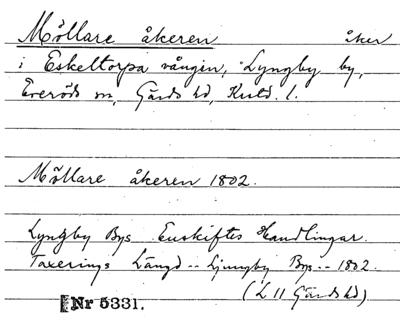 Möllare åkeren åker
i Eskeltorpa vången, Lyngby by,
Everöds sn, Gärds hd, Kristd. l.
Möllare åkeren 1802.
Lyngby Bys Enskiftes Handlingar.
Taxerings Längd -- Ljungby Bys -- 1802.
(L 11 Gärds hd)
Nr 5331.